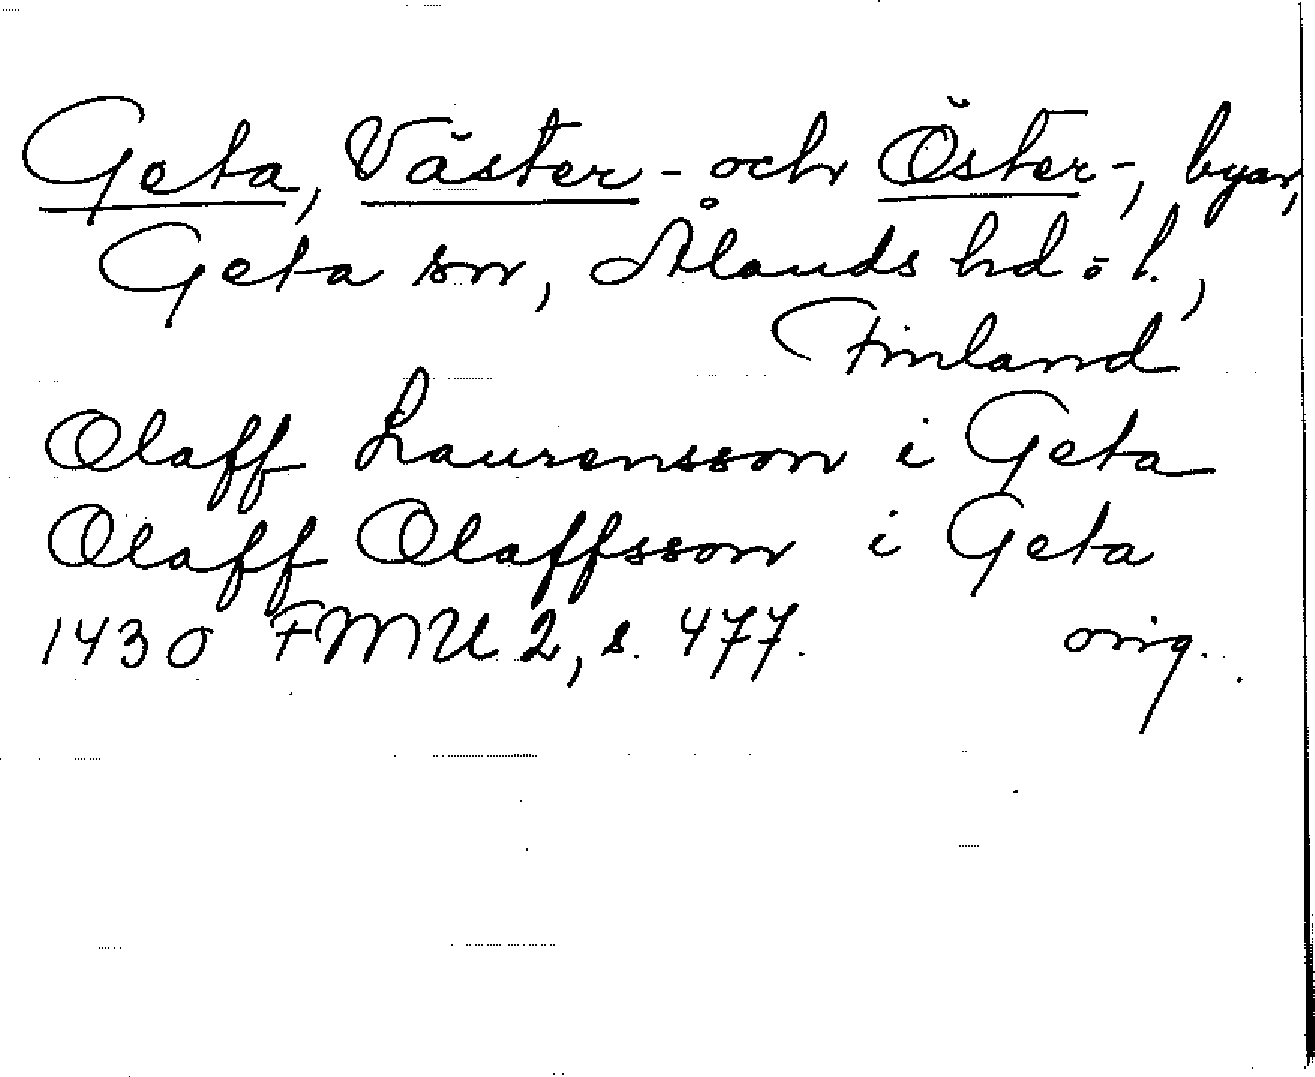 Geta, Väster- och Öster-, byar,
Geta sn, Ålands hd o l.,
Finland
Olaff Laurensson i Geta
Olaff Olaffsson i Geta
1430 FMU 2, s. 477. orig.